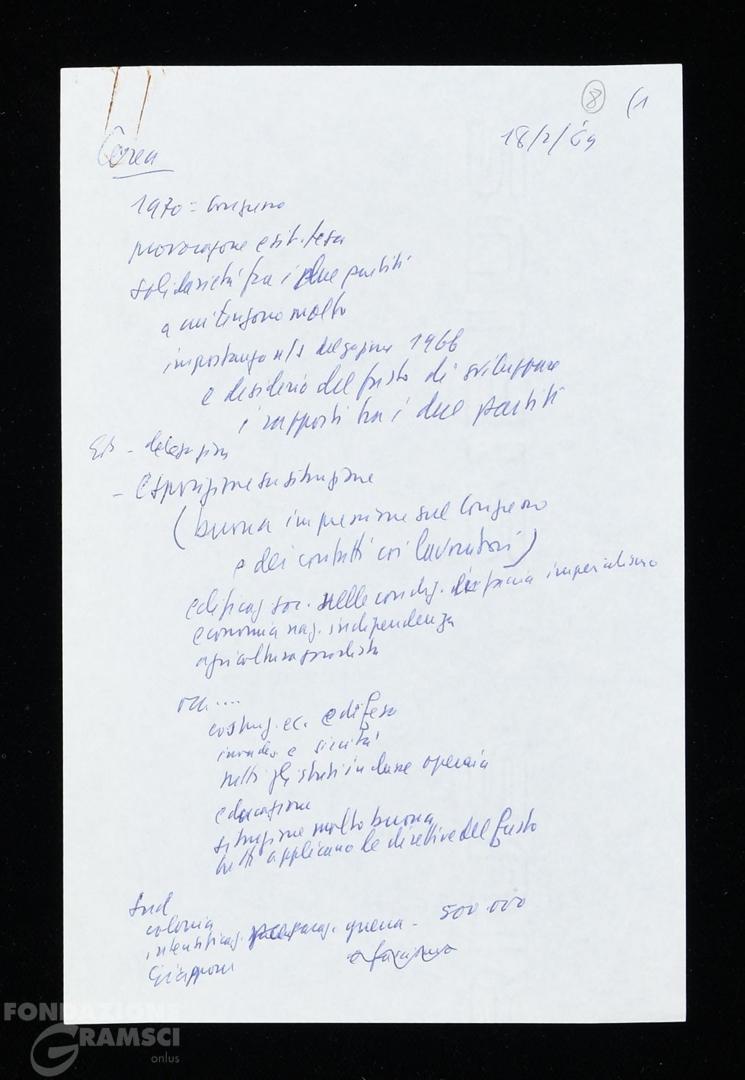 8 (1
18/2/69
Corea
1970 = Congresso
provocazione e sit. tesa
solidarietà fra i due partiti
a cui tengono molto
importanza n/s delegazione 1966
e desiderio del Pnsto di sviluppare
i rapporti tra i due partiti
- delegazione
- esposizione su situazione
(buona impressione sul Congresso
e dei contatti coi lavoratori)
edificaz. soc. nelle condiz. minaccia imperialismo
economia naz. indipendenza
agricoltura
ora ....
costruz. ec. e difesa
e
tutti gli strati in classe operaia
educazione
situazione molto buona
tutti applicano le direttive del
Sud
colonia
intensificaz. preparaz. guerra - 500.000
Giappone
FONDAZIONE
GRAMSCI
onlus